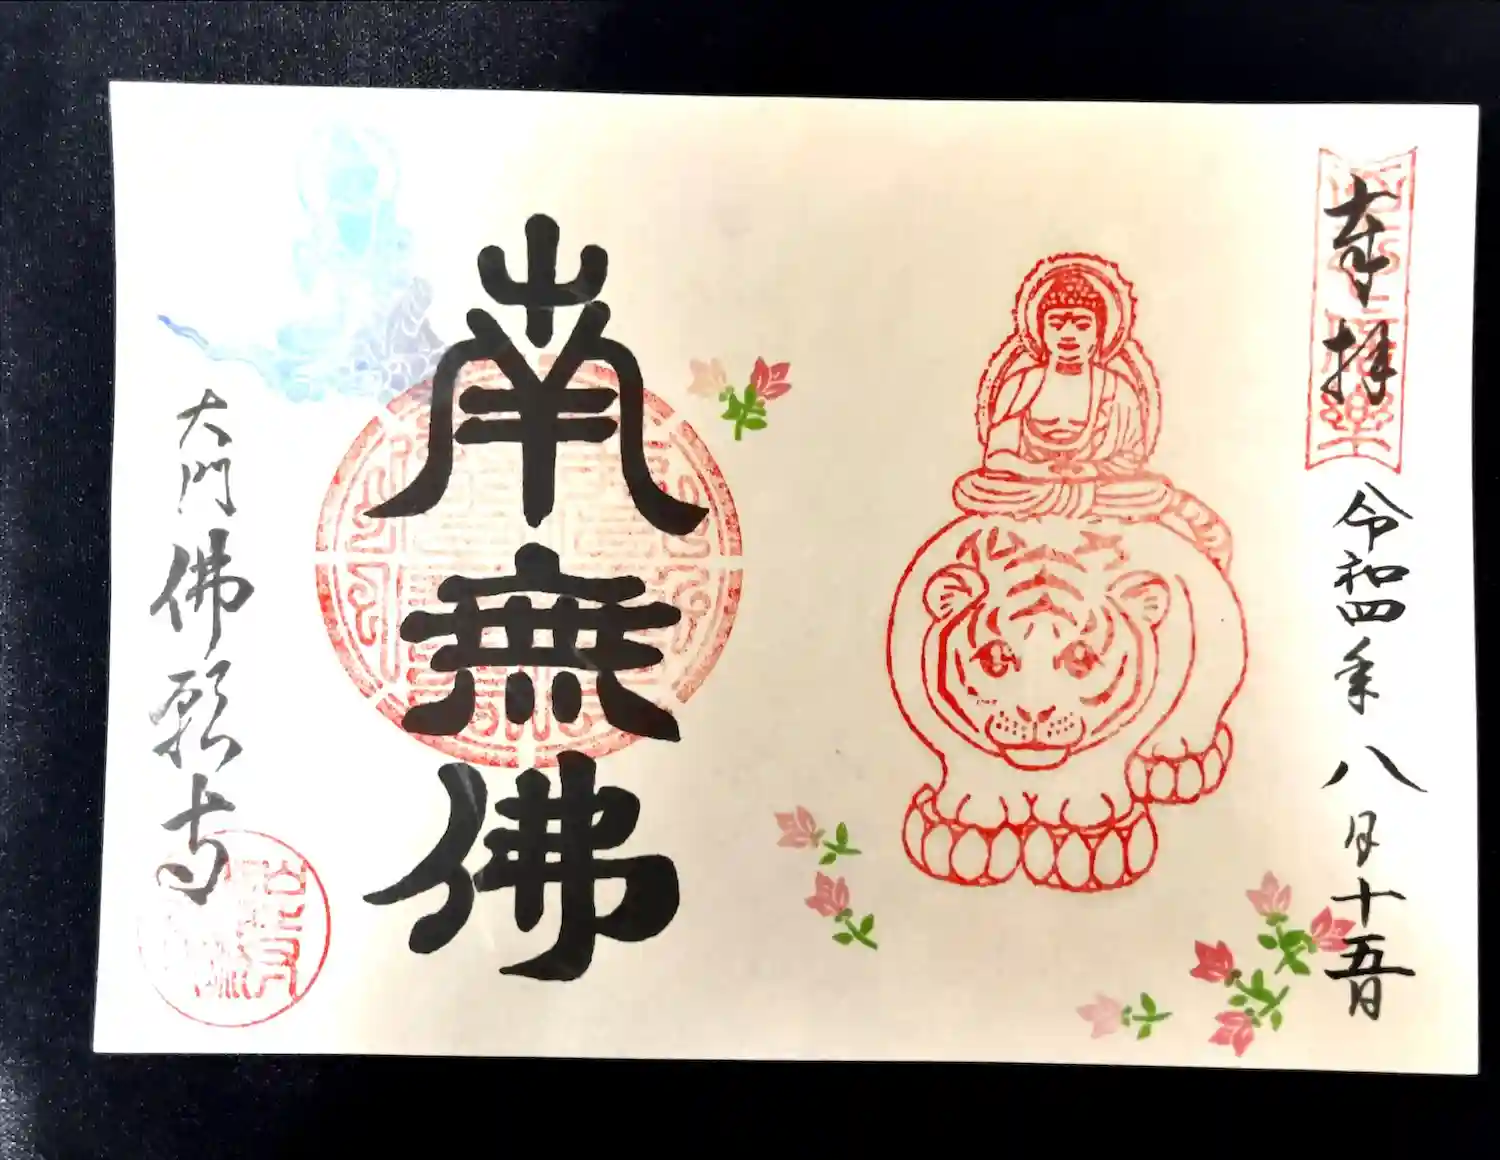 奉拝
令和四年八月十五日
南無佛
大門 佛願寺